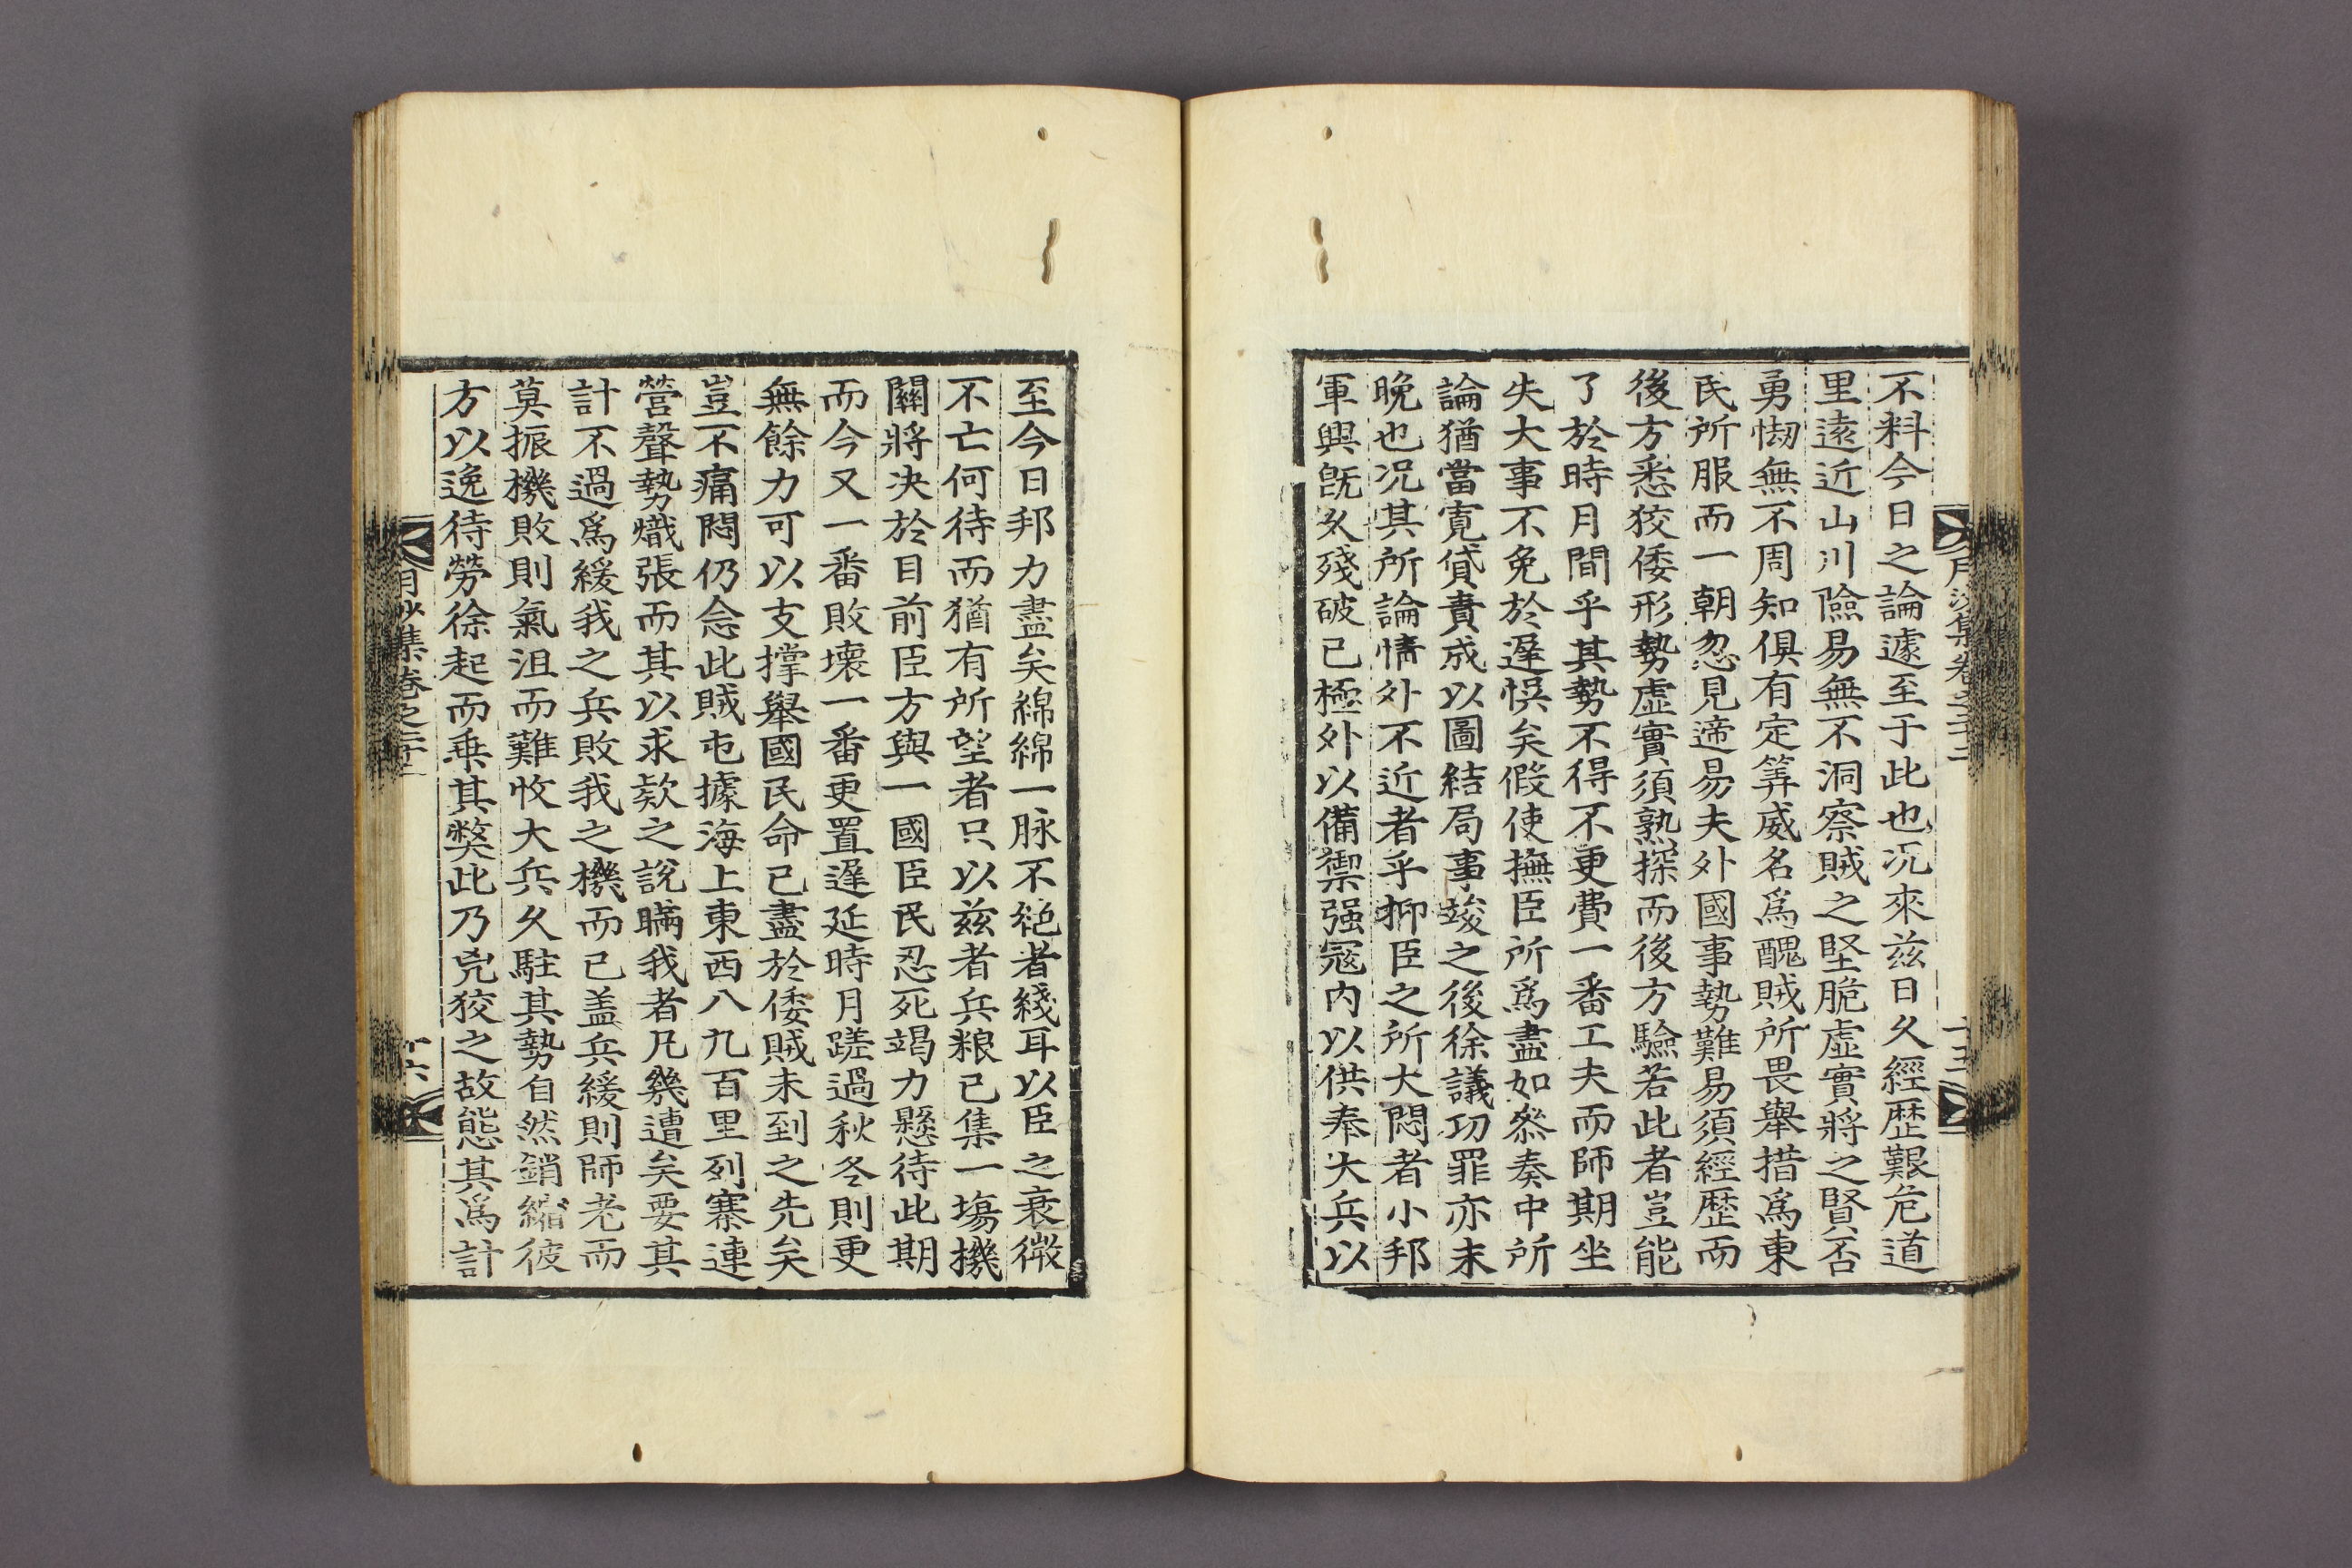 不料今日之論遽至于此也况來玆日久經歷艱危道
里遠近山川險易無不洞察賊之堅脆虛實將之賢否
勇㤼無不周知俱有定筭威名爲醜賊所畏舉措爲東
民所服而一朝忽見遆易夫外國事勢難易須經歷而
後方悉狡倭形勢虛實須熟探而後方驗若此者豈能
了於時月間乎其勢不得不更費一番工夫而師期坐
失大事不免於遲悞矣假使撫臣所爲盡如叅奏中所
論猶當寬貸責成以圖結局事竣之後徐議功罪亦未
晩也况其所論情外不近者乎抑臣之所大悶者小邦
軍興旣久殘破已極外以備禦强寇内以供奉大兵以
至今日邦力盡矣綿綿一脉不絶者綫耳以臣之衰微
不亡何待而猶有所望者只以玆者兵粮已集一塲機
關將決於目前臣方與一國臣民忍死竭力懸待此期
而今又一番敗壞一番更置遲延時月蹉過秋冬則更
無餘力可以支撑舉國民命已盡於倭賊未到之先矣
豈不痛悶仍念此賊屯據海上東西八九百里列寨連
營聲勢熾張而其以求欵之說瞞我者凡幾遭矣要其
計不過爲緩我之兵敗我之機而已盖兵緩則師老而
莫振機敗則氣沮而難收大兵久駐其勢自然銷縮彼
方以逸待勞徐起而乗其弊此乃兇狡之故態其爲計
月沙集卷之二十二
十六